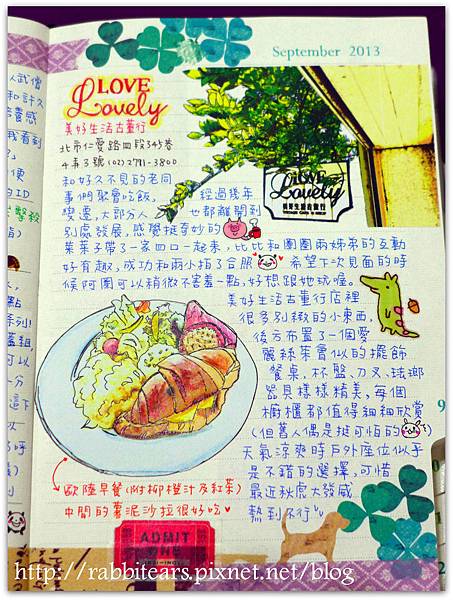 September 2013
LOVE
Lovely
美好生活古董行
北市仁愛路四段345巷
4弄3號 (02)2781-3800
和好久不見的老同
事們聚會吃飯,
經過幾年
變遷,大部分人
也都離開到
別處發展,感覺挺奇妙的
葉葉子帶了一家四口一起來,比比和團團兩姊弟的互動
好有趣,成功和兩小拍了合照
希望下次見面的時
候阿團可以稍微不害羞一點,好想跟她玩喔。
美好生活古董行店裡
很多別緻的小東西,
後方布置了一個愛
麗絲茶會似的擺飾
餐桌,杯盤、刀叉、琺瑯
器具樣樣精美,每個
櫥櫃都值得細細欣賞
(但舊人偶是挺可怕的!)
天氣涼爽時戶外座位似乎
是不錯的選擇,可惜
最近秋虎大發威
熱到不行
歐陸早餐(附柳橙汁及紅茶)
中間的薯泥沙拉很好吃
LOVE
Lovely
美好生活古董行
ADMIT
ONE
http://rabbitears.pixnet.net/blog